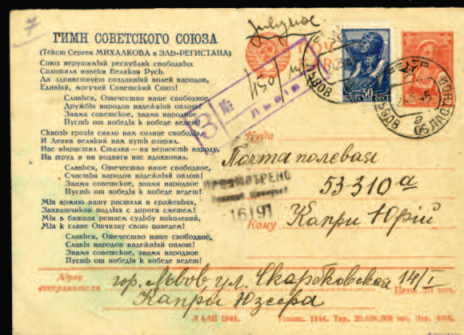 ГИМН СОВЕТСКОГО СОЮЗА
(Текст Сергея МИХАЛКОВА и ЭЛЬ-РЕГИСТАНА)
Союз нерушимый республик свободных
Сплотила навеки Великая Русь.
Да здравствует созданный волей народов,
Единый, могучий Советский Союз!
Славься, Отечество наше свободное,
Дружбы народов надежный оплот!
Знамя советское, знамя народное
Пусть от победы к победе ведет!
Сквозь грозы сияло нам солнце свободы,
И Ленин великий нам путь озарил.
Нас вырастил Сталин — на верность народу,
На труд и на подвиги нас вдохновил.
Славься, Отечество наше свободное,
Счастья народов надежный оплот!
Знамя советское, знамя народное
Пусть от победы к победе ведет!
Мы армию нашу растили в сраженьях,
Захватчиков подлых с дороги сметем!
Мы в битвах решаем судьбу поколений,
Мы к славе Отчизну свою поведем!
Славься, Отечество наше свободное,
Славы народов надежный оплот!
Знамя советское, знамя народное
Пусть от победы к победе ведет!
150
50
ЛЬВОВ
Куда
Полта полевая
53310 а
ПРОСМОТРЕНО
16191
Кому
Капри Юрій
Адрес
отправителя
гор. Львов ул. Скарбковская 14/I
Капри Юзефа
1944